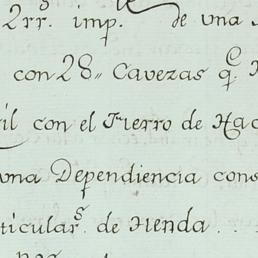 2rr.s imp. de una
con 28,, Cavezas q.e
il con el Fierro de Hac
una Dependiencia cons
ticular.s de Henda . .